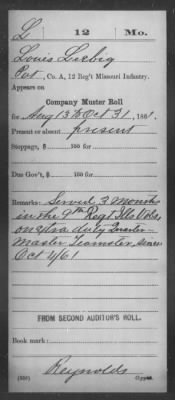 L 12 Mo.
Louis Liebig
Pvt, Co. A, 12 Reg't Missouri Infantry.
Appears on
Company Muster Roll
for Aug 13 to Oct 31, 1861.
Present or absent present
Stoppage, $ 100 for
Due Gov't, $ 100 for
Remarks: Served 3 Months
in the 9th Regt Ills Vols,
on extra duty Quarter-
Master Teamster, since
Oct 4/61
FROM SECOND AUDITOR'S ROLL.
Book mark:
Reynolds
(556) Copyist.